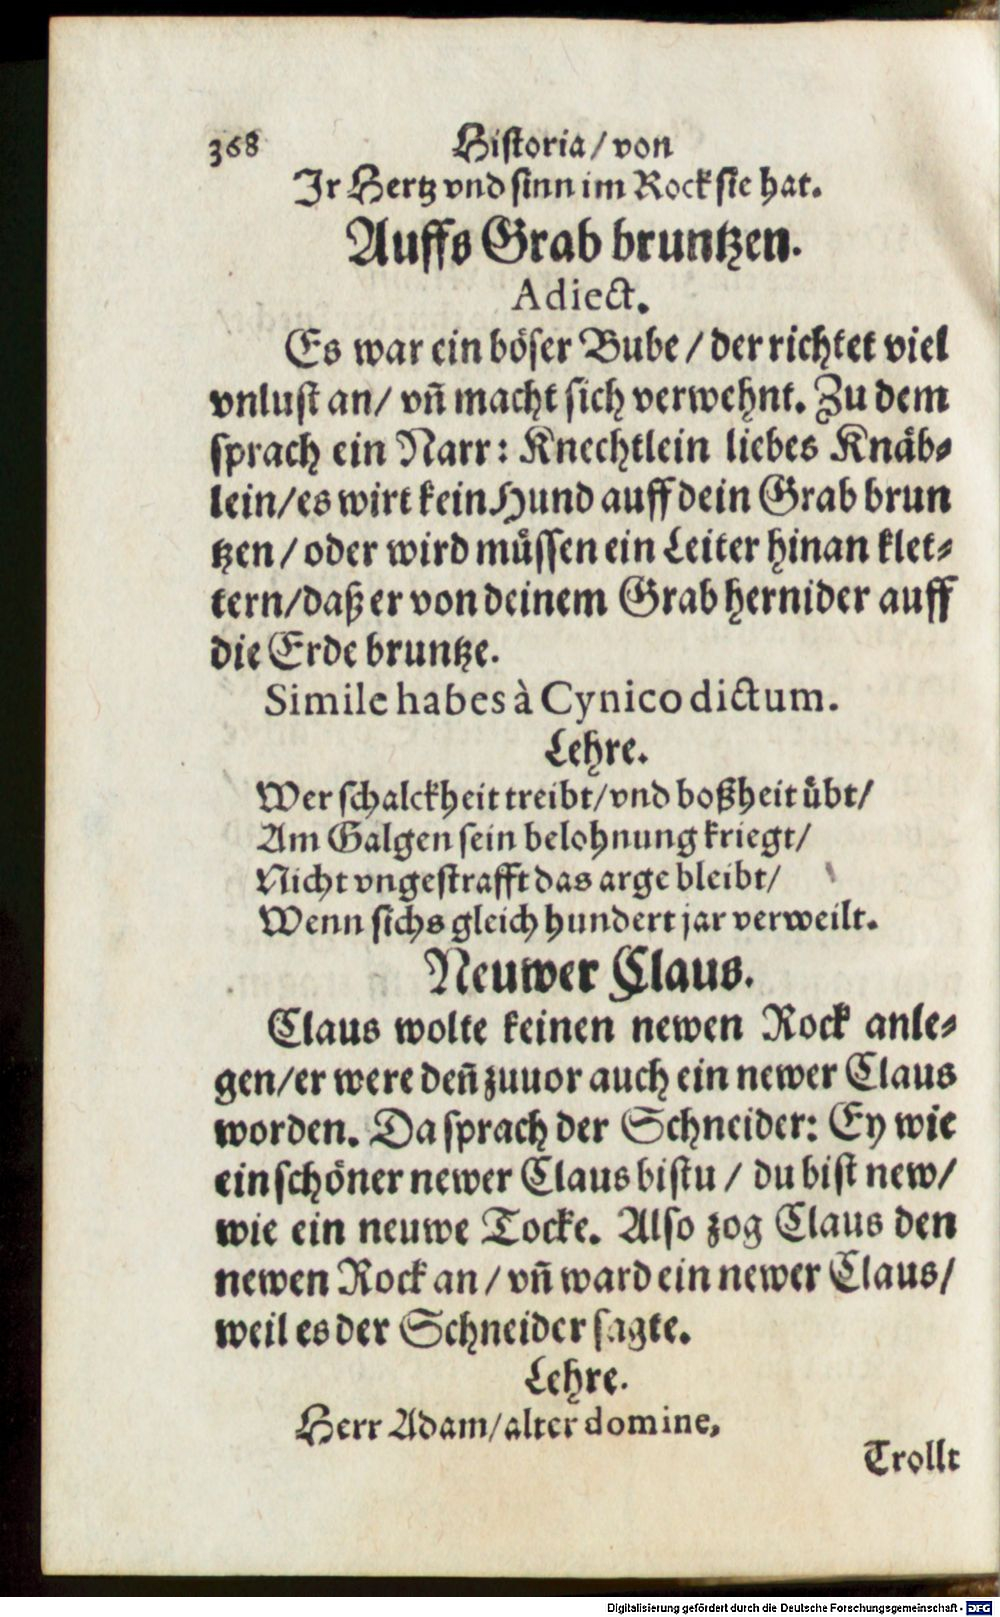 368 Historia/von
Jr Hertz vnd sinn im Rock sie hat.
Auffs Grab bruntzen.
Adiect.
Es war ein böser Bube / der richtet viel
vnlust an/ vñ macht sich verwehnt. Zu dem
sprach ein Narr: Knechtlein liebes Knäb⸗
lein/es wirt kein Hund auff dein Grab brun
tzen / oder wird müssen ein Leiter hinan klet⸗
tern/daß er von deinem Grab hernider auff
die Erde bruntze.
Simile habes à Cynico dictum.
Lehre.
Wer schalckheit treibt/vnd boßheit übt/
Am Galgen sein belohnung kriegt/
Nicht vngestrafft das arge bleibt/
Wenn sichs gleich hundert jar verweilt.
Neuwer Claus.
Claus wolte keinen newen Rock anle⸗
gen/er were deñ zuuor auch ein newer Claus
worden. Da sprach der Schneider: Ey wie
ein schöner newer Claus bistu / du bist new/
wie ein neuwe Tocke. Also zog Claus den
newen Rock an / vñ ward ein newer Claus/
weil es der Schneider sagte.
Lehre.
Herr Adam/alter domine,
Trollt
Digitalisierung gefördert durch die Deutsche Forschungsgemeinschaft - DFG